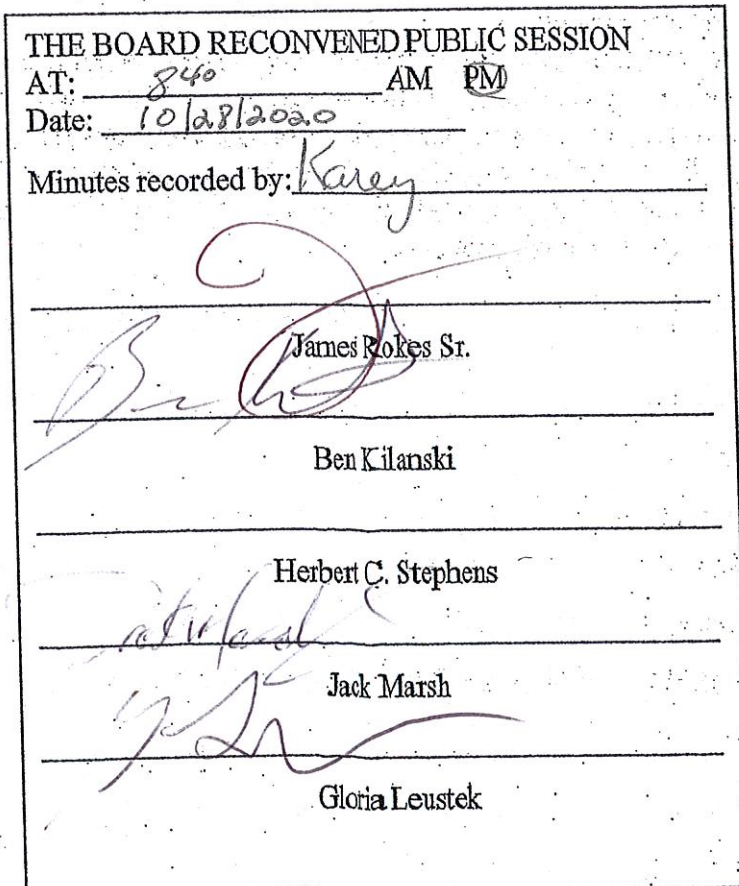 THE BOARD RECONVENED PUBLIC SESSION
AT: 840 AM PM
Date: 10/28/2020
Minutes recorded by: Karey
James Rokes Sr.
Ben Kilanski
Herbert C. Stephens
Jack Marsh
Gloria Leustek